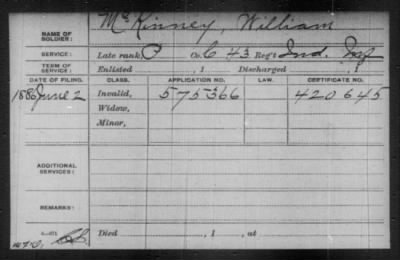 NAME OF SOLDIER: McKinney, William
SERVICE: Late rank P Co. C 43 Reg't Ind. Inf
TERM OF SERVICE: Enlisted , 1 Discharged , 1
DATE OF FILING. CLASS. APPLICATION NO. LAW. CERTIFICATE NO.
1886 June 2 Invalid, 575366 420645
Widow,
Minor,
ADDITIONAL SERVICES:
REMARKS:
Died , 1 , at